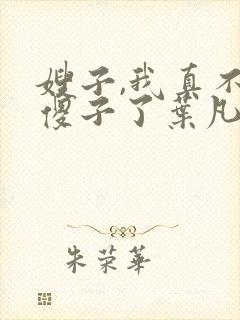 嫂子,我真不
傻子了葉凡
朱荣華